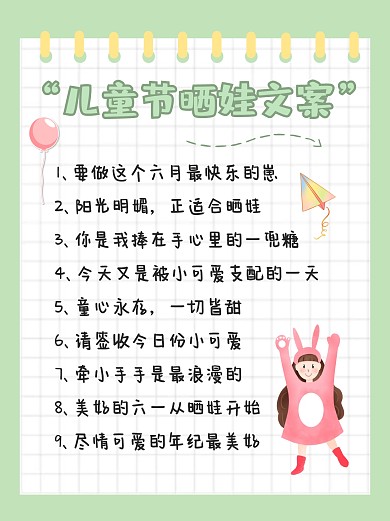 “儿童节晒娃文案”
1、要做这个六月最快乐的崽
2、阳光明媚，正适合晒娃
3、你是我捧在手心里的一兜糖
4、今天又是被小可爱支配的一天
5、童心永存，一切皆甜
6、请签收今日份小可爱
7、牵小手手是最浪漫的
8、美好的六一从晒娃开始
9、尽情可爱的年纪最美好